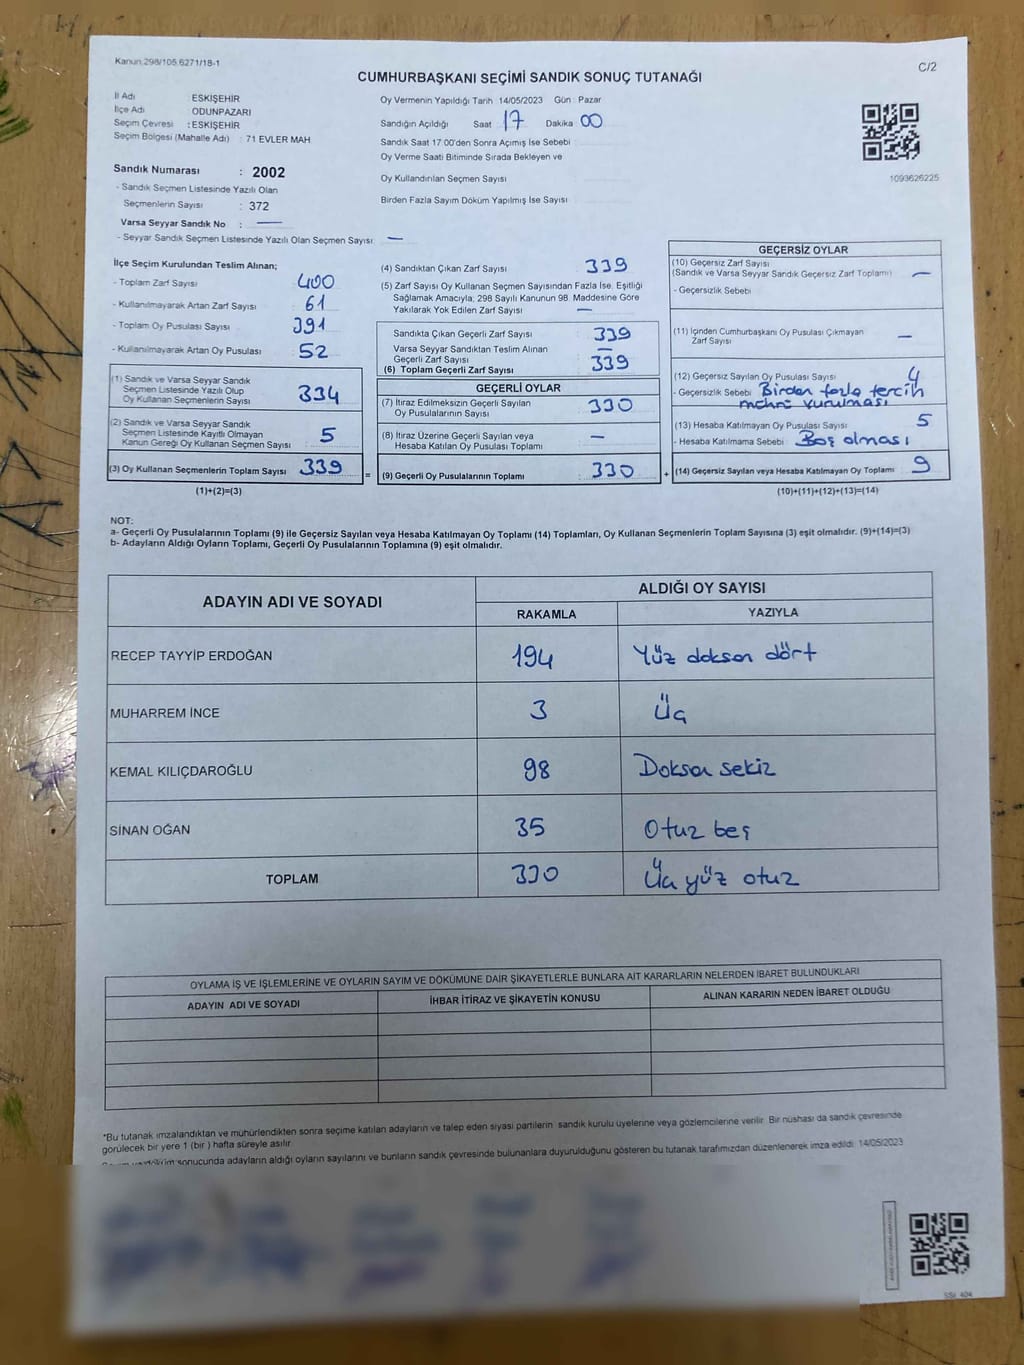 Kanun 298/105 6271/18-1
C/2
CUMHURBAŞKANI SEÇİMİ SANDIK SONUÇ TUTANAĞI
İl Adı ESKİŞEHİR
İlçe Adı ODUNPAZARI
Seçim Çevresi : ESKİŞEHİR
Seçim Bölgesi (Mahalle Adı) : 71 EVLER MAH
Sandık Numarası : 2002
- Sandık Seçmen Listesinde Yazılı Olan
Seçmenlerin Sayısı : 372
Varsa Seyyar Sandık No : —
- Seyyar Sandık Seçmen Listesinde Yazılı Olan Seçmen Sayısı: —
Oy Vermenin Yapıldığı Tarih 14/05/2023 Gün : Pazar
Sandığın Açıldığı Saat 17 Dakika 00
Sandık Saat 17 00'den Sonra Açımış İse Sebebi
Oy Verme Saati Bitiminde Sırada Bekleyen ve
Oy Kullandırılan Seçmen Sayısı
Birden Fazla Sayım Döküm Yapılmış İse Sayısı
1093626225
İlçe Seçim Kurulundan Teslim Alınan;
- Toplam Zarf Sayısı : 400
- Kullanılmayarak Artan Zarf Sayısı : 61
- Toplam Oy Pusulası Sayısı : 391
- Kullanılmayarak Artan Oy Pusulası : 52
(1) Sandık ve Varsa Seyyar Sandık
Seçmen Listesinde Yazılı Olup
Oy Kullanan Seçmenlerin Sayısı : 334
(2) Sandık ve Varsa Seyyar Sandık
Seçmen Listesinde Kayıtlı Olmayan
Kanun Gereği Oy Kullanan Seçmen Sayısı : 5
(3) Oy Kullanan Seçmenlerin Toplam Sayısı : 339
(1)+(2)=(3)
=
(4) Sandıktan Çıkan Zarf Sayısı : 339
(5) Zarf Sayısı Oy Kullanan Seçmen Sayısından Fazla İse, Eşitliği
Sağlamak Amacıyla, 298 Sayılı Kanunun 98. Maddesine Göre
Yakılarak Yok Edilen Zarf Sayısı : —
Sandıkta Çıkan Geçerli Zarf Sayısı : 339
Varsa Seyyar Sandıktan Teslim Alınan
Geçerli Zarf Sayısı —
(6) Toplam Geçerli Zarf Sayısı : 339
GEÇERLİ OYLAR
(7) İtiraz Edilmeksizin Geçerli Sayılan
Oy Pusulalarının Sayısı : 330
(8) İtiraz Üzerine Geçerli Sayılan veya
Hesaba Katılan Oy Pusulaları Toplamı : —
(9) Geçerli Oy Pusulalarının Toplamı : 330
+
GEÇERSİZ OYLAR
(10) Geçersiz Zarf Sayısı
(Sandık ve Varsa Seyyar Sandık Geçersiz Zarf Toplamı) : —
- Geçersizlik Sebebi
(11) İçinden Cumhurbaşkanı Oy Pusulası Çıkmayan
Zarf Sayısı —
(12) Geçersiz Sayılan Oy Pusulası Sayısı : 4
- Geçersizlik Sebebi Birden fazla tercih
mührü vurulması
(13) Hesaba Katılmayan Oy Pusulası Sayısı : 5
- Hesaba Katılmama Sebebi : Boş olması
(14) Geçersiz Sayılan veya Hesaba Katılmayan Oy Toplamı : 9
(10)+(11)+(12)+(13)=(14)
NOT:
a- Geçerli Oy Pusulalarının Toplamı (9) ile Geçersiz Sayılan veya Hesaba Katılmayan Oy Toplamı (14) Toplamları, Oy Kullanan Seçmenlerin Toplam Sayısına (3) eşit olmalıdır. (9)+(14)=(3)
b- Adayların Aldığı Oyların Toplamı, Geçerli Oy Pusulalarının Toplamına (9) eşit olmalıdır.
ADAYIN ADI VE SOYADI
ALDIĞI OY SAYISI
RAKAMLA YAZIYLA
RECEP TAYYİP ERDOĞAN 194 Yüz doksan dört
MUHARREM İNCE 3 Üç
KEMAL KILIÇDAROĞLU 98 Doksan sekiz
SİNAN OĞAN 35 Otuz beş
TOPLAM 330 Üç yüz otuz
OYLAMA İŞ VE İŞLEMLERİNE VE OYLARIN SAYIM VE DÖKÜMÜNE DAİR ŞİKAYETLERLE BUNLARA AİT KARARLARIN NELERDEN İBARET BULUNDUKLARI
ADAYIN ADI VE SOYADI İHBAR İTİRAZ VE ŞİKAYETİN KONUSU ALINAN KARARIN NEDEN İBARET OLDUĞU
*Bu tutanak imzalandıktan ve mühürlendikten sonra seçime katılan adayların ve talep eden siyasi partilerin sandık kurulu üyelerine veya gözlemcilerine verilir. Bir nüshası da sandık çevresinde
görülecek bir yere 1 (bir ) hafta süreyle asılır.
sonucunda adayların aldığı oyların sayılarını ve bunların sandık çevresinde bulunanlara duyurulduğunu gösteren bu tutanak tarafımızdan düzenlenerek imza edildi. 14/05/2023
SSI 404